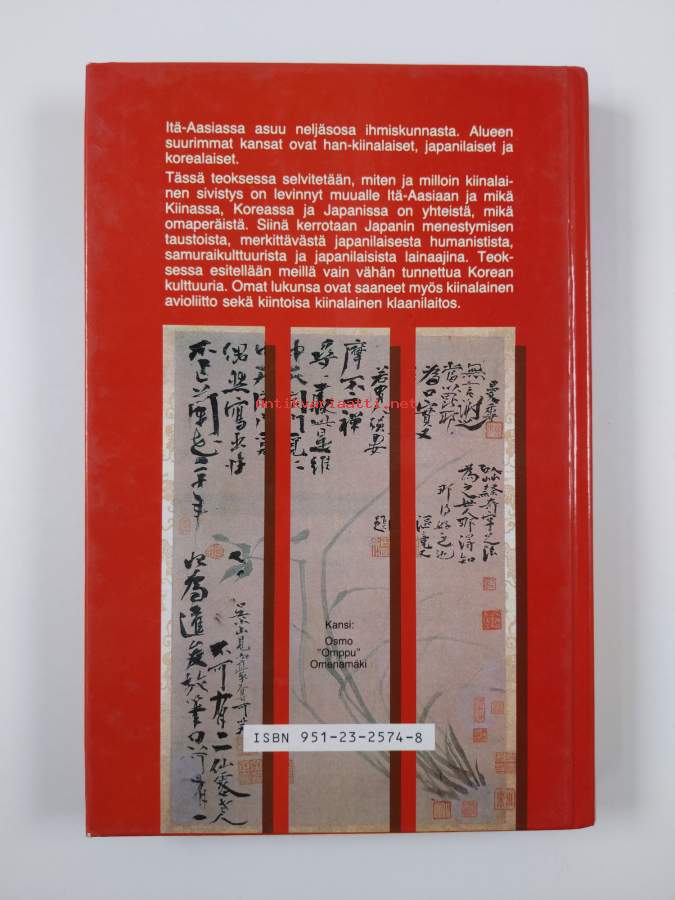 Itä-Aasiassa asuu neljäsosa ihmiskunnasta. Alueen
suurimmat kansat ovat han-kiinalaiset, japanilaiset ja
korealaiset.
Tässä teoksessa selvitetään, miten ja milloin kiinalai-
nen sivistys on levinnyt muualle Itä-Aasiaan ja mikä
Kiinassa, Koreassa ja Japanissa on yhteistä, mikä
omaperäistä. Siinä kerrotaan Japanin menestymisen
taustoista, merkittävästä japanilaisesta humanistista,
samuraikulttuurista ja japanilaisista lainaajina. Teok-
sessa esitellään meillä vain vähän tunnettua Korean
kulttuuria. Omat lukunsa ovat saaneet myös kiinalainen
avioliitto sekä kiintoisa kiinalainen klaanilaitos.
蘭花二十年
偶然寫出性
此是維
摩不二禪
爲口實又
當以毘耶
無言謝
草隸奇字之法
爲之世人那得知
那得好之也
始爲達俊放筆只可有一
不可有二仙客老人
吳小山見而豪奪可笑
antikvariaatti.net
Kansi:
Osmo
"Omppu"
Omenamäki
ISBN 951-23-2574-8